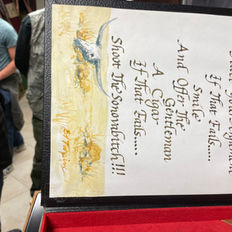 If That Fails....
Smile
And Offer The
Gentleman
A Cigar
If That Fails....
Shoot The Sonombitch!!!